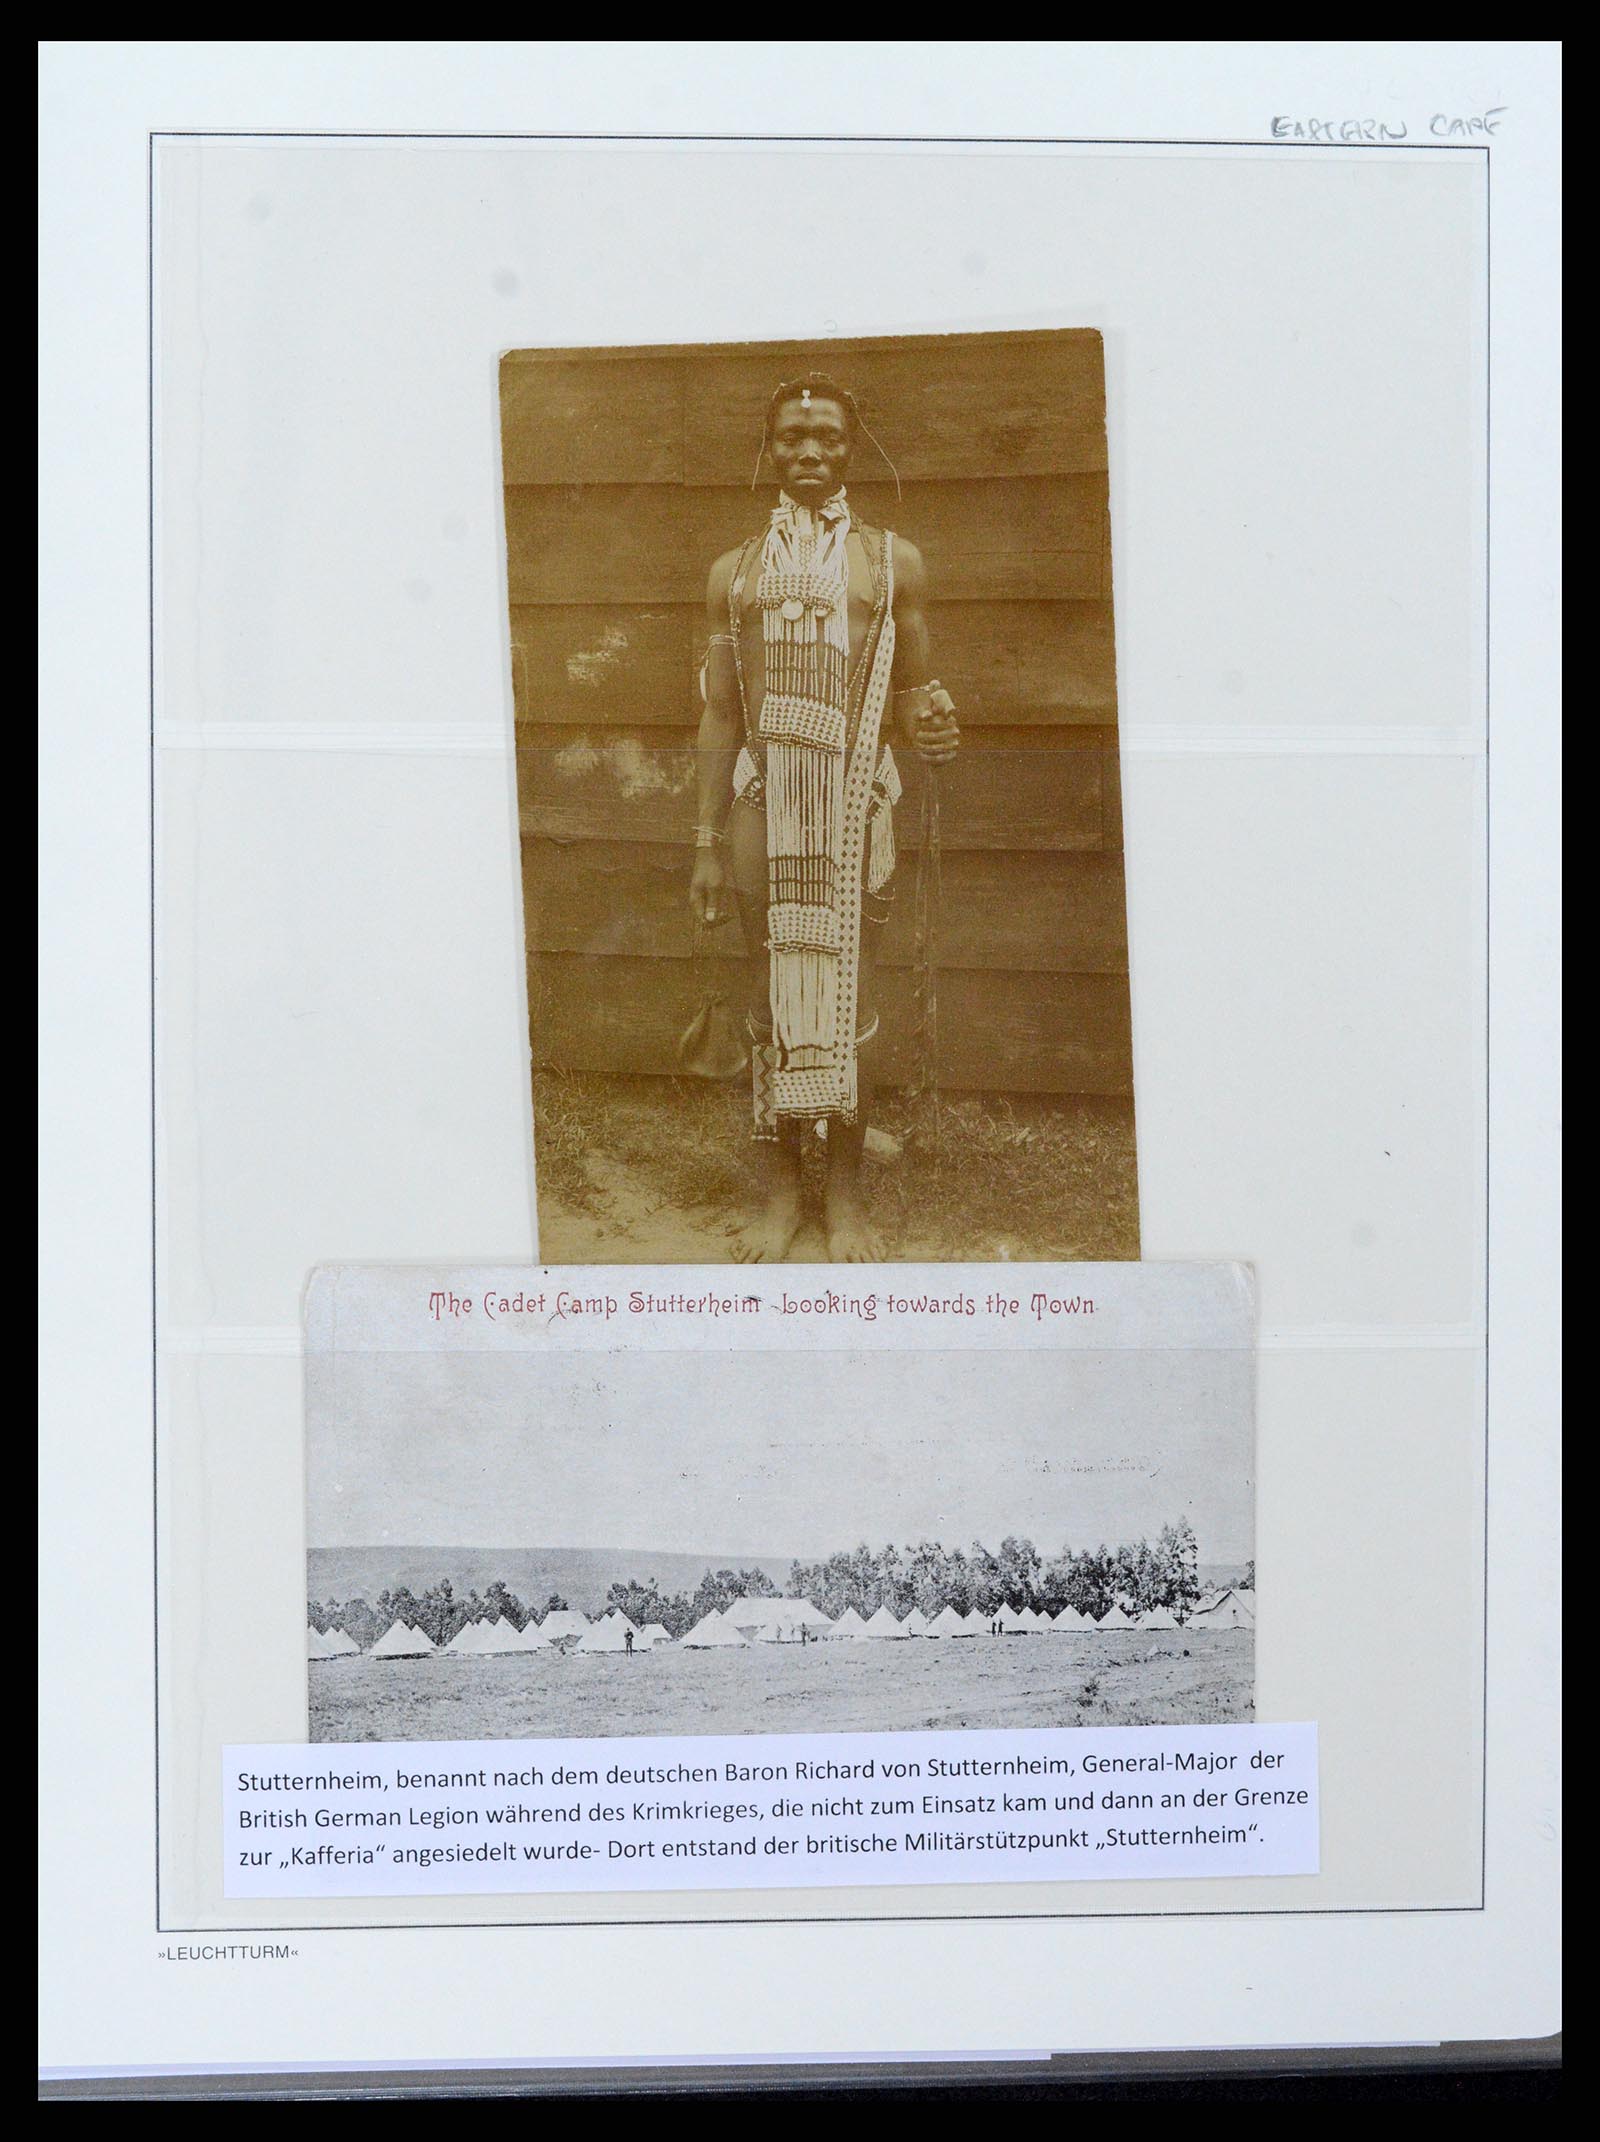 EASTERN CAPE
The Cadet Camp Stutterheim - Looking towards the Town
Stutternheim, benannt nach dem deutschen Baron Richard von Stutternheim, General-Major der
British German Legion während des Krimkrieges, die nicht zum Einsatz kam und dann an der Grenze
zur „Kafferia“ angesiedelt wurde- Dort entstand der britische Militärstützpunkt „Stutternheim“.
»LEUCHTTURM«